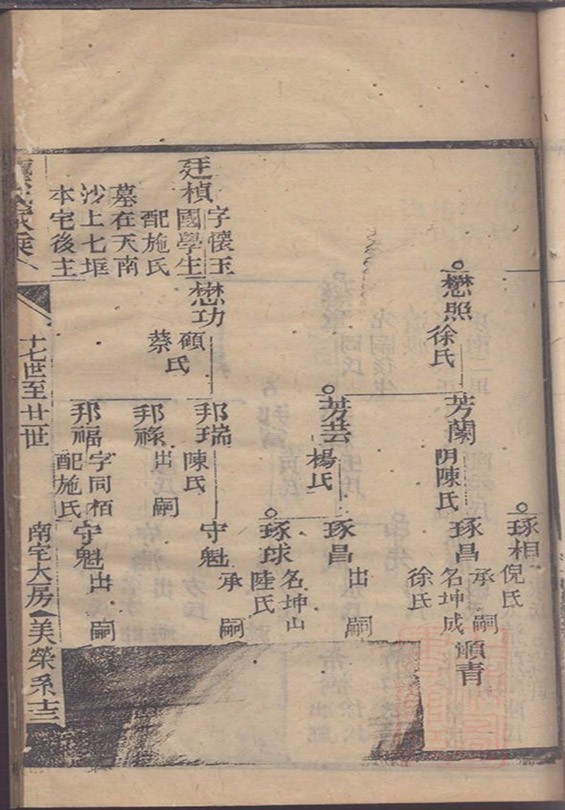 琢相
倪氏
懋照
徐氏
芳蘭
陳氏
琢昌
承嗣
名坤成
徐氏
順青
芳芸
楊氏
琢昌
出嗣
琢球
名坤山
陸氏
廷楨
字懷玉
國學生
配施氏
墓在天南
沙上七堰
本宅後主
懋功
顧
蔡氏
邦瑞
陳氏
守魁
承嗣
邦祿
出嗣
邦福
字同栢
配施氏
守魁
出嗣
家乘
十七世至廿世
南宅大房
美榮系
十三